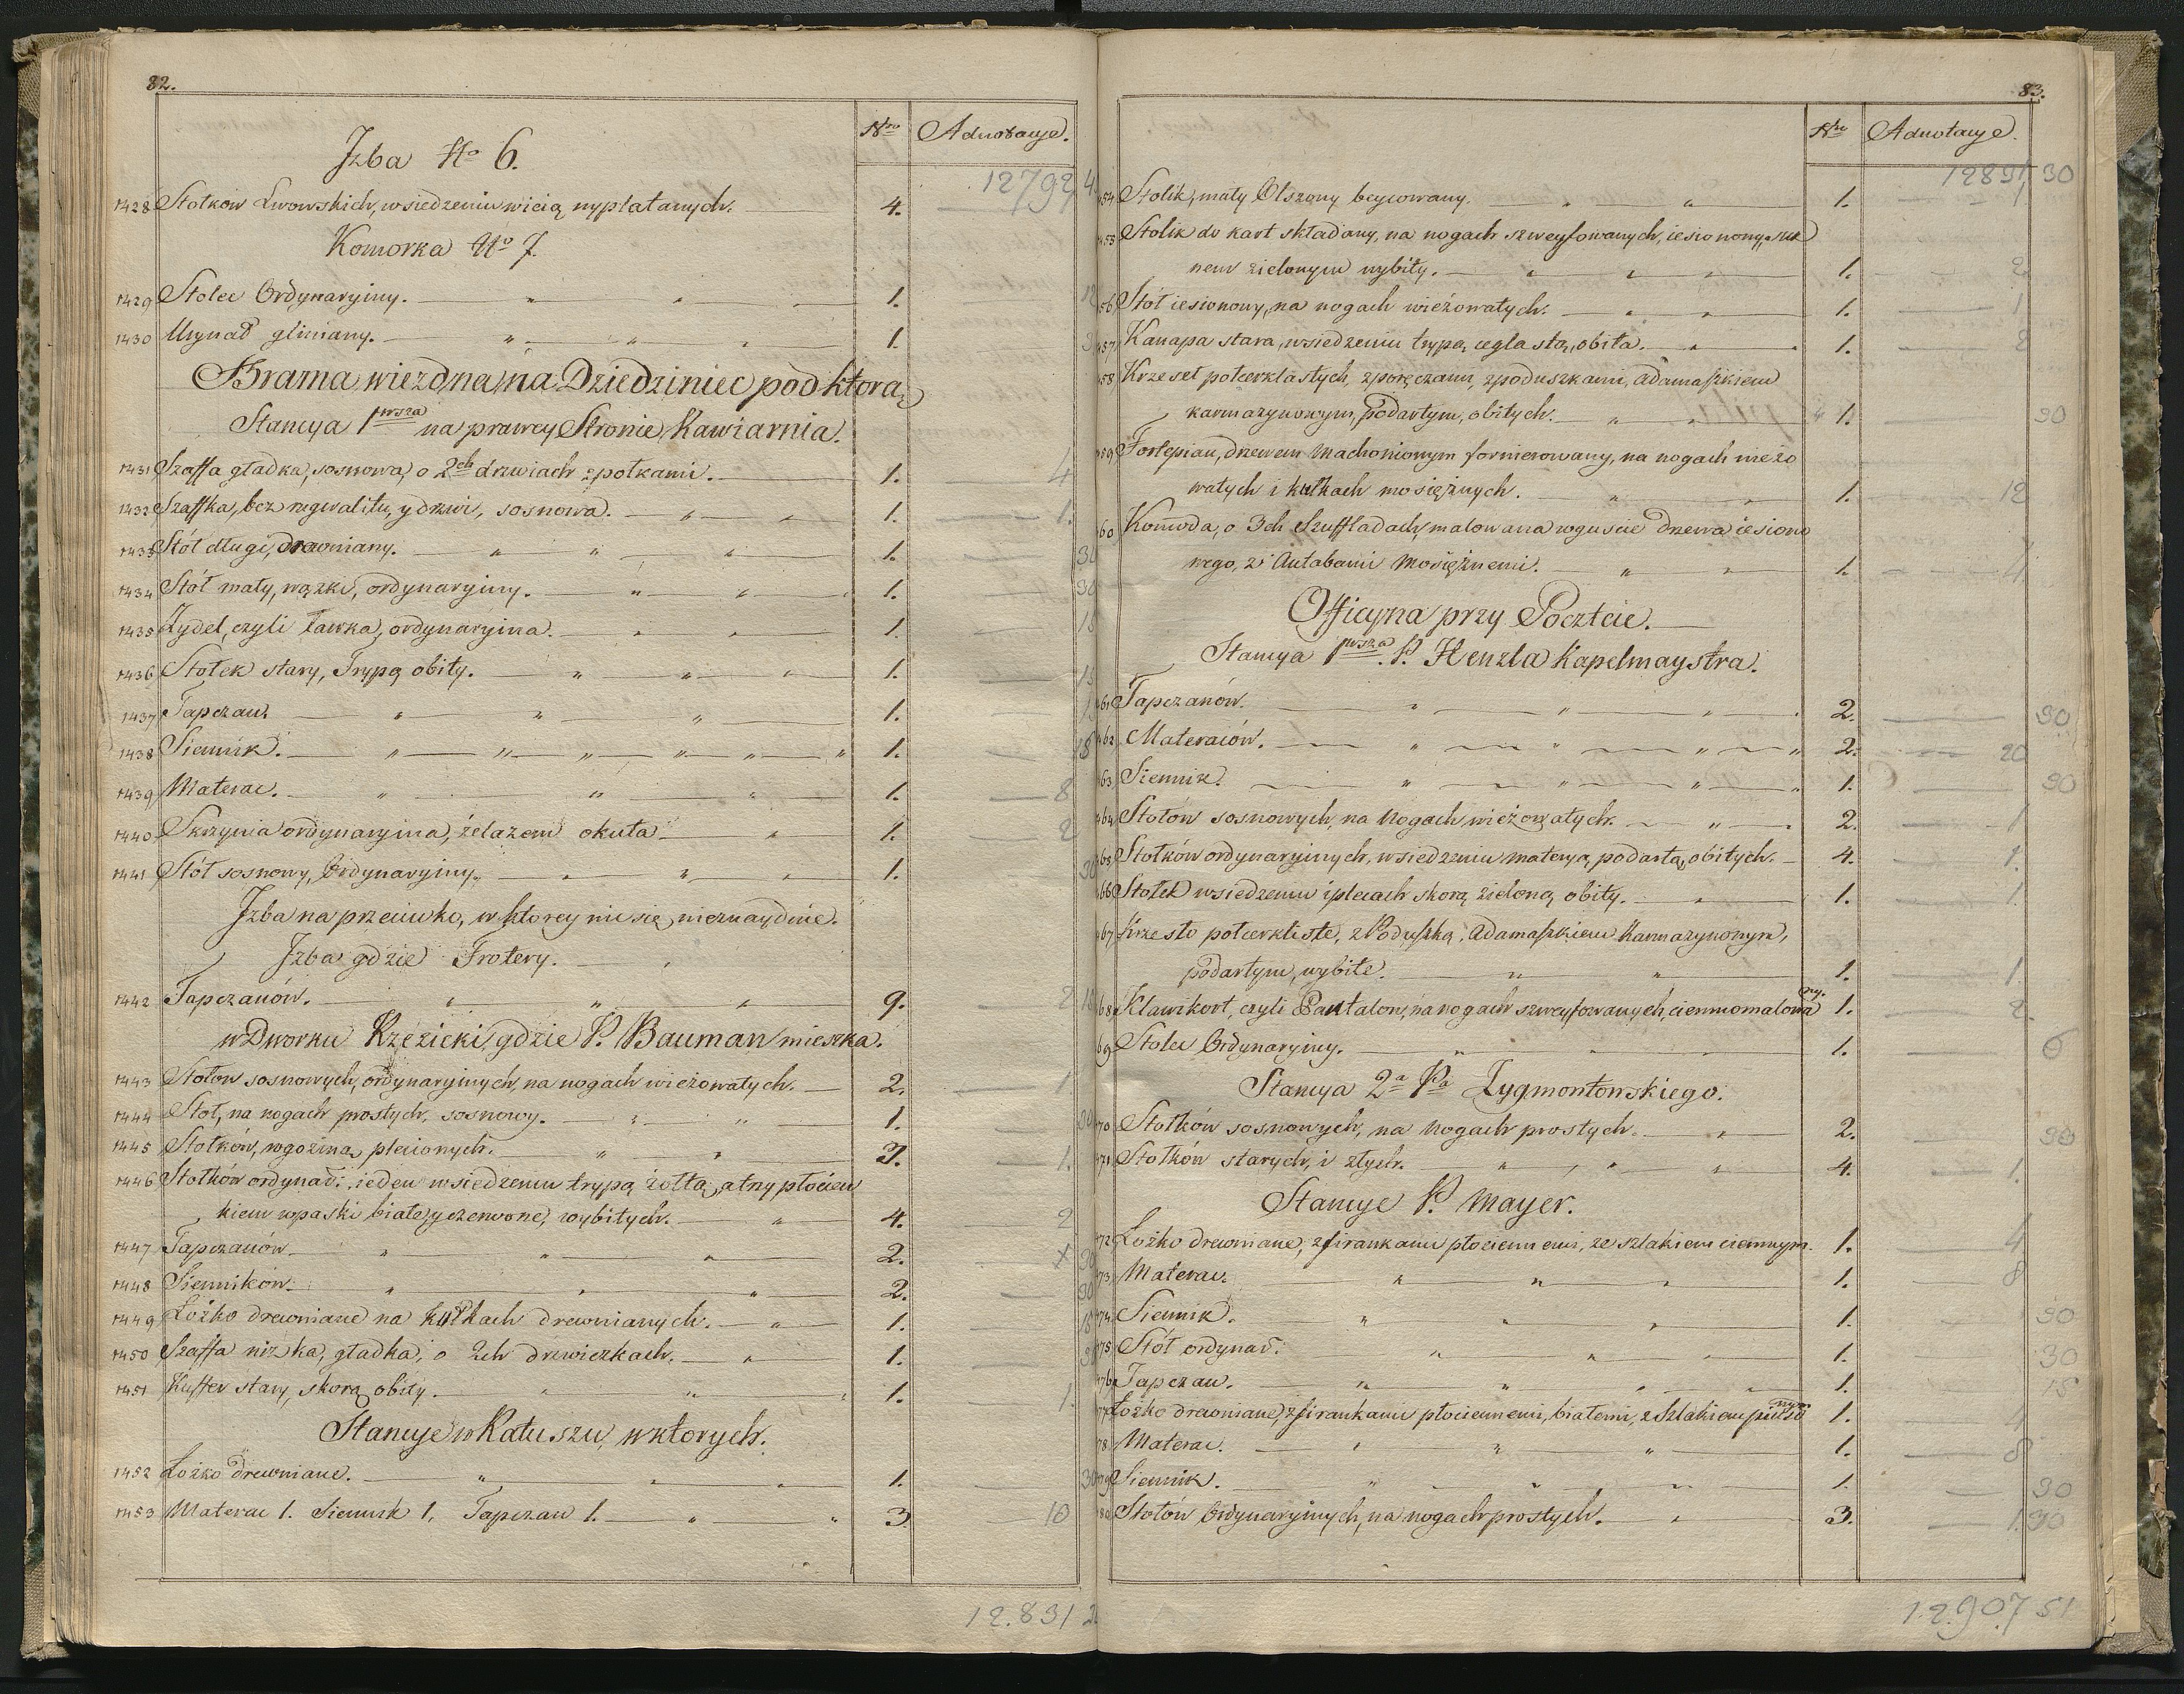 82.
Nro Adnotacye.
Jzba No 6.
12792 4
1428 Stołkow Lwowskich, w siedzeniu wicią wyplatanych. 4.
Komorka No 7.
1429 Stolec Ordynaryiny. 1. 12
1430 Urynał gliniany. 1. 3
Brama wiezdna na Dziedziniec pod ktorą
Stancya 1wsza na prawey Stronie Kawiarnia.
1431 Szaffa gładka, sosnowa, o 2ch drzwiach z połkami. 1. 4
1432 Szaffka, bez regwalitu, y drzwi, sosnowa. 1. 1.
1433 Stół długi, drewniany. 1. 30
1434 Stół mały, wązki, ordynaryiny. 1. 30
1435 Zydel, czyli ławka, ordynaryina. 1. 15
1436 Stołek stary, Trypą obity. 1. 15
1437 Tapczan. 1. 15
1438 Siennik. 1. 18
1439 Materac. 1. 8
1440 Skrzynia ordynaryina, żelazem okuta. 1. 2
1441 Stół sosnowy, Ordynaryiny. 1. 30
Jzba na przeciwko, w ktorey nic się nieznaydnie.
Jzba gdzie Frotery.
1442 Tapczanów. 9. 2
w Dworku Rzezicki, gdzie P. Bauman mieszka.
1443 Stołow sosnowych, ordynaryinych, na nogach wieżowatych. 2. 1
1444 Stoł, na nogach prostych, sosnowy. 1. 30
1445 Stołków, rogoziną, plecionych. 3. 1.
1446 Stołków ordynar: ieden w siedzeniu trypą żołtą, a trzy płocien
kiem w paski białe, y czerwone, wybitych. 4. 2
1447 Tapczanów. 2. x 30
1448 Sienników. 2. 30
1449 Łożko drewniane na kółkach drewnianych. 1. 18
1450 Szaffa nizka, gładka, o 2ch drzwiczkach. 1.
1451 Kuffer stary, skorą obity. 1. 1.
Stancye w Ratuszu, w ktorych.
1452 Łożko drewniane. 1. 30
1453 Materac 1. Siennik 1, Tapczan 1. 3 10
12.831
83.
Nro Adnotacye.
12831 30
54 Stolik, mały Olszowy beycowany. 1. 1
455 Stolik do kart składany, na nogach szweyfowanych, iesionowy, suk
nem zielonym wybity. 1. 2.
56 Stół iesionowy, na nogach wieżowatych. 1. 1
457 Kanapa stara, w siedzeniu trypą ceglastą, obita. 1. 2
58 Krzeseł połcerklastych, z poręczami, z poduszkami, adamaszkiem
karmazynowym, podartym, obitych. 1. 30
459 Fortepian, drzewem machoniowym fornierowany, na nogach wieżo
watych i kułkach mosiężnych. 1. 12
60 Komoda, o 3ch Szuffladach, malowana w guście drzewa iesiono
wego, z Antabami mosiężnemi. 1. 4
Officyna przy Poczcie.
Stancya 1wsza. P. Henzla Kapelmaystra.
461 Tapczanów. 2. 30
462 Materaców. 2. 20
463 Siennik. 1. 30
464 Stołów sosnowych, na Nogach wieżowatych. 2. 1
465 Stołków ordynaryinych, w siedzeniu materyą, podartą, obitych. 4. 1.
66 Stołek w siedzeniu i plecach skorą zieloną obity. 1. 1.
467 Krzesło połcerkliste, z Poduszką, Adamaszkiem Karmazynowym,
podartym, wybite. 1. 1.
68 Klawikort, czyli Pantalon, na nogach szweyfowanych, ciemnomalowa
ny. 1. 2.
69 Stolec Ordynaryiny. 1. 6
Stancya 2a Pa Zygmontowskiego.
70 Stołków sosnowych, na Nogach prostych. 2. 30
471 Stołków starych, i złych. 4. 1.
Stancye P. Mayer.
472 Łożko drewniane, z firankami płociennemi, ze szlakiem ciemnym. 1. 4
73 Materac. 1. 8
474 Siennik. 1. 30
475 Stół ordynar: 1. 30
476 Tapczan. 1. 15
77 Łożko drewniane, z firankami płociennemi, białemi, z Szlakiem 1. 4
78 Materac. 1. 8
79 Siennik. 1. 30
80 Stołów Ordynaryinych, na nogach prostych. 3. 1.30
12.907 51